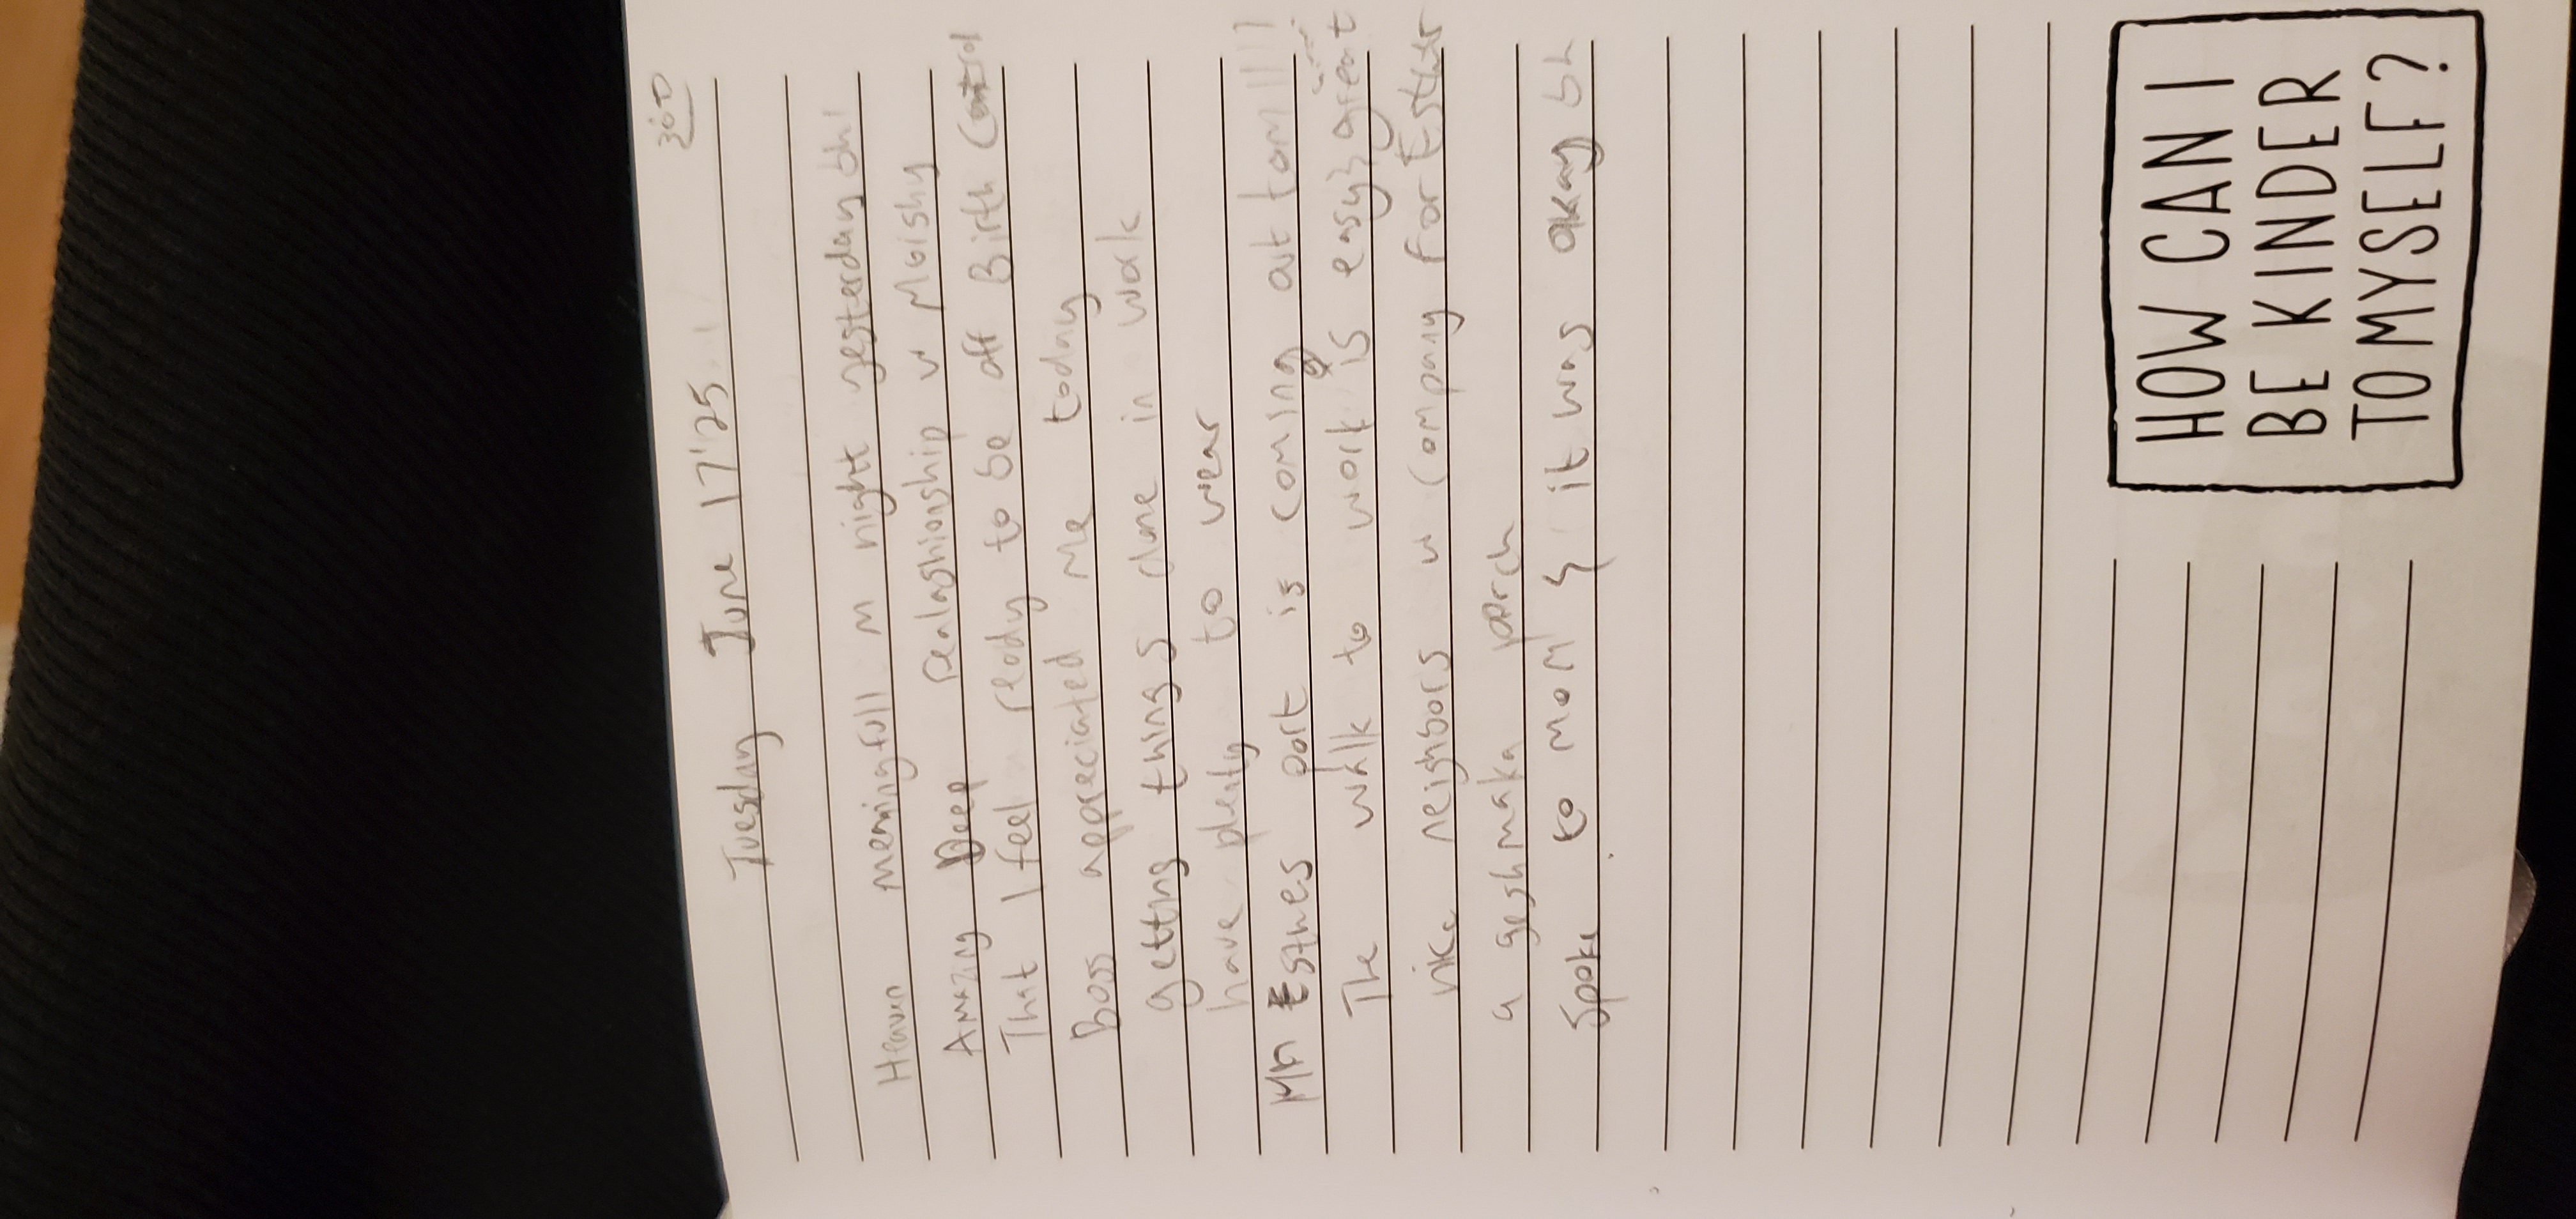 Tuesday June 17'25
Heavn meaningfull m night yesterday bh!
Amazing Deep realashionship w Moishy
That I feel ready to be off Birth Control
Boss appreciated me today
getting things done in work
have plenty to wear
Mn Esthes port is coming out tom!!!!
The walk to work is easy & great
nice neighbors w company for Esther
a geshmaka porch
Spoke to mom & it was okay bh
HOW CAN I
BE KINDER
TO MYSELF?